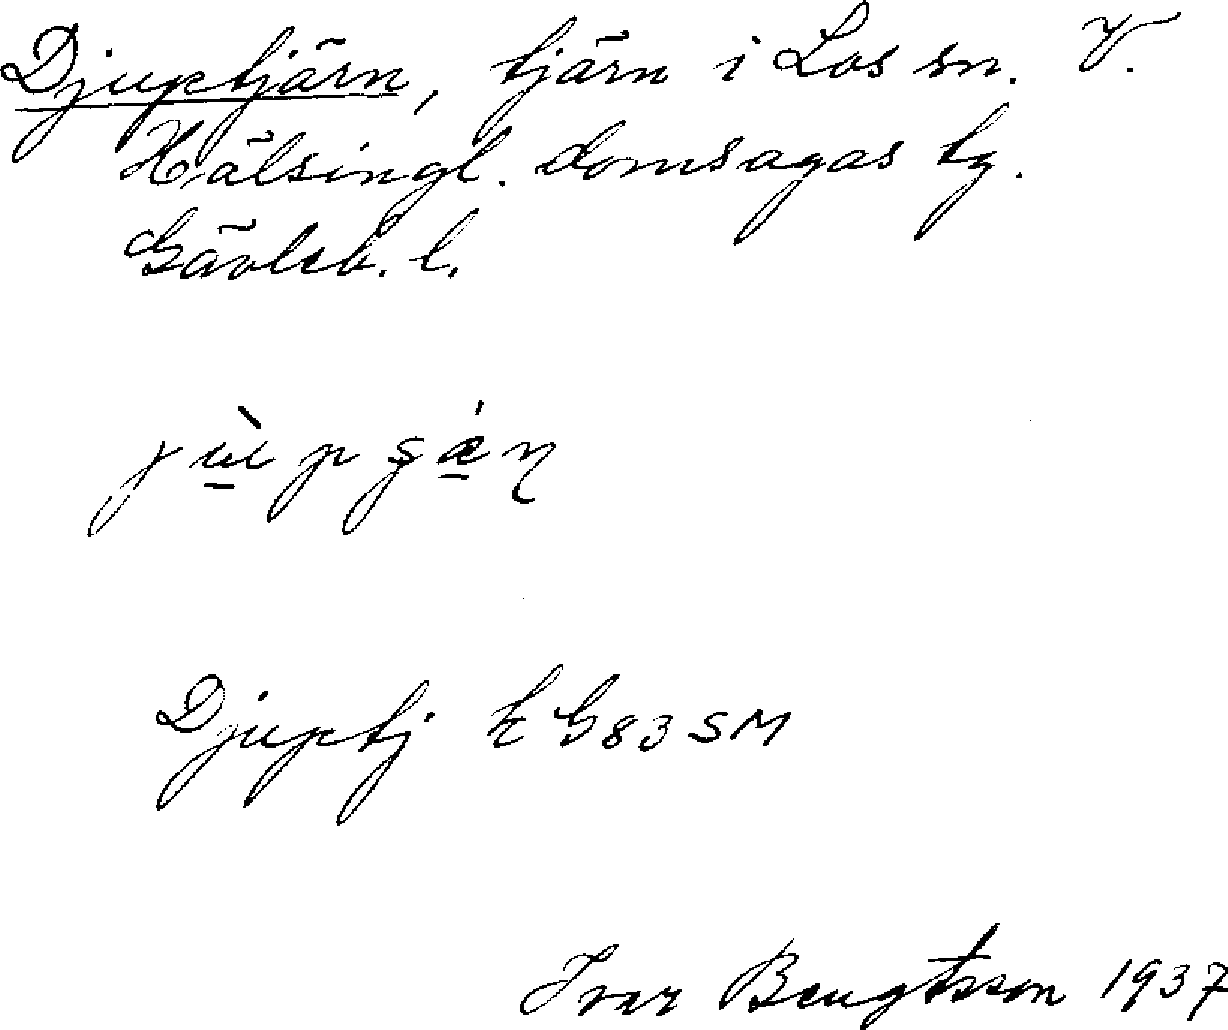 Djuptjärn, tjärn i Los sn. V.
Hälsingl. domsagas tg.
Gävleb. l.
Djuptj k G83 SM
Ivar Bengtsson 1937